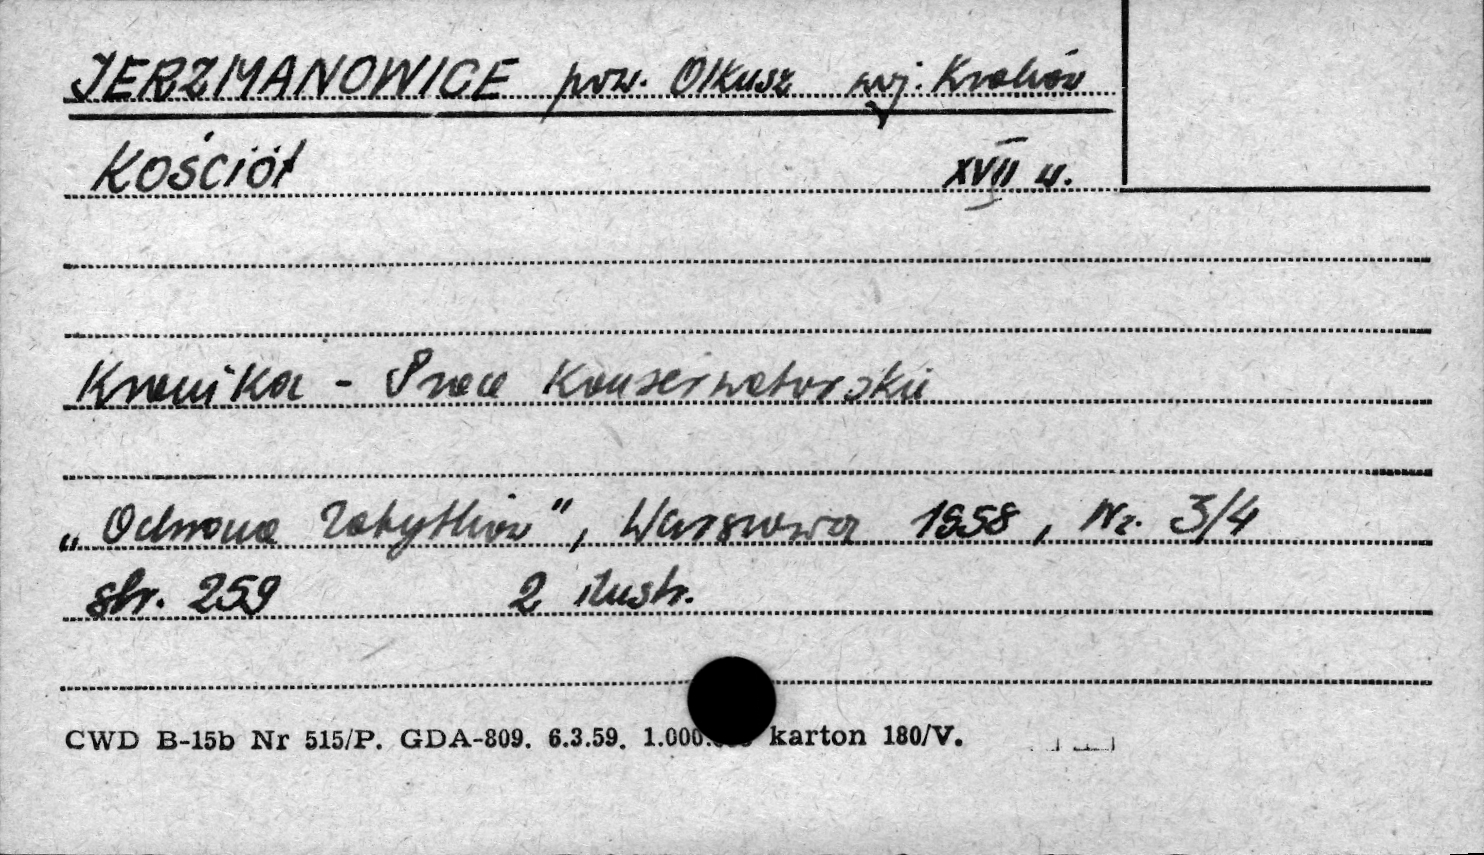 JERZMANOWICE pow. Olkusz woj. Kraków
Kościół XVII w.
Kronika - Prace Konserwatorskie
„Ochrona Zabytków", Warszawa 1958, Nr. 3/4
str. 259 2 ilustr.
CWD B-15b Nr 515/P. GDA-809. 6.3.59. 1.000. karton 180/V.